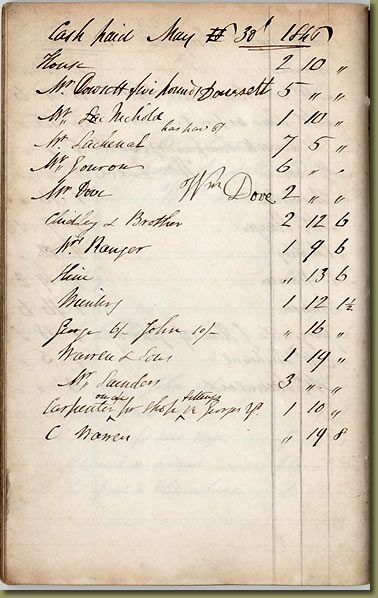 Cash paid May 30 1846
House 2 10 „
Mr Dowsett five pounds Dowsett 5 „ „
Mr Nichold 1 10 „
has paid
Mr Lachenal 7 5 „
Mr Jouron 6 „ „
Mr Dove Wm Dove 2 „ „
Chidley & Brother 2 12 6
Mr Ranger 1 9 6
Hine „ 13 6
1 12 1½
George 6/- John 10/- „ 16 „
Warren & Sons 1 19 „
Mr Saunders 3 „ „
on a/c fittings
Carpenter for shop George 1 10 „
C Warren „ 19 8